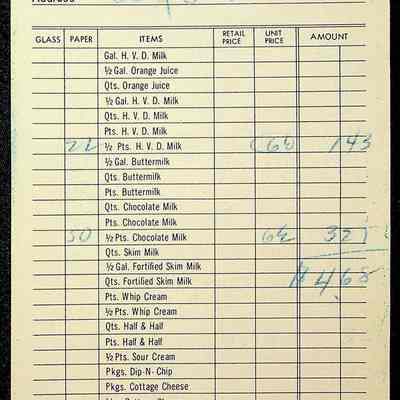 Address
GLASS PAPER ITEMS RETAIL PRICE UNIT PRICE AMOUNT
Gal. H. V. D. Milk
½ Gal. Orange Juice
Qts. Orange Juice
½ Gal. H. V. D. Milk
Qts. H. V. D. Milk
Pts. H. V. D. Milk
22 ½ Pts. H. V. D. Milk 143
½ Gal. Buttermilk
Qts. Buttermilk
Pts. Buttermilk
Qts. Chocolate Milk
Pts. Chocolate Milk
50 ½ Pts. Chocolate Milk 6½ 325
Qts. Skim Milk
½ Gal. Fortified Skim Milk 4.68
Qts. Fortified Skim Milk
Pts. Whip Cream
½ Pts. Whip Cream
Qts. Half & Half
Pts. Half & Half
½ Pts. Sour Cream
Pkgs. Dip-N- Chip
Pkgs. Cottage Cheese